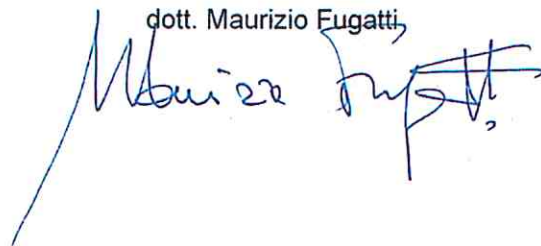 dott. Maurizio Fugatti
Maurizio Fugatti